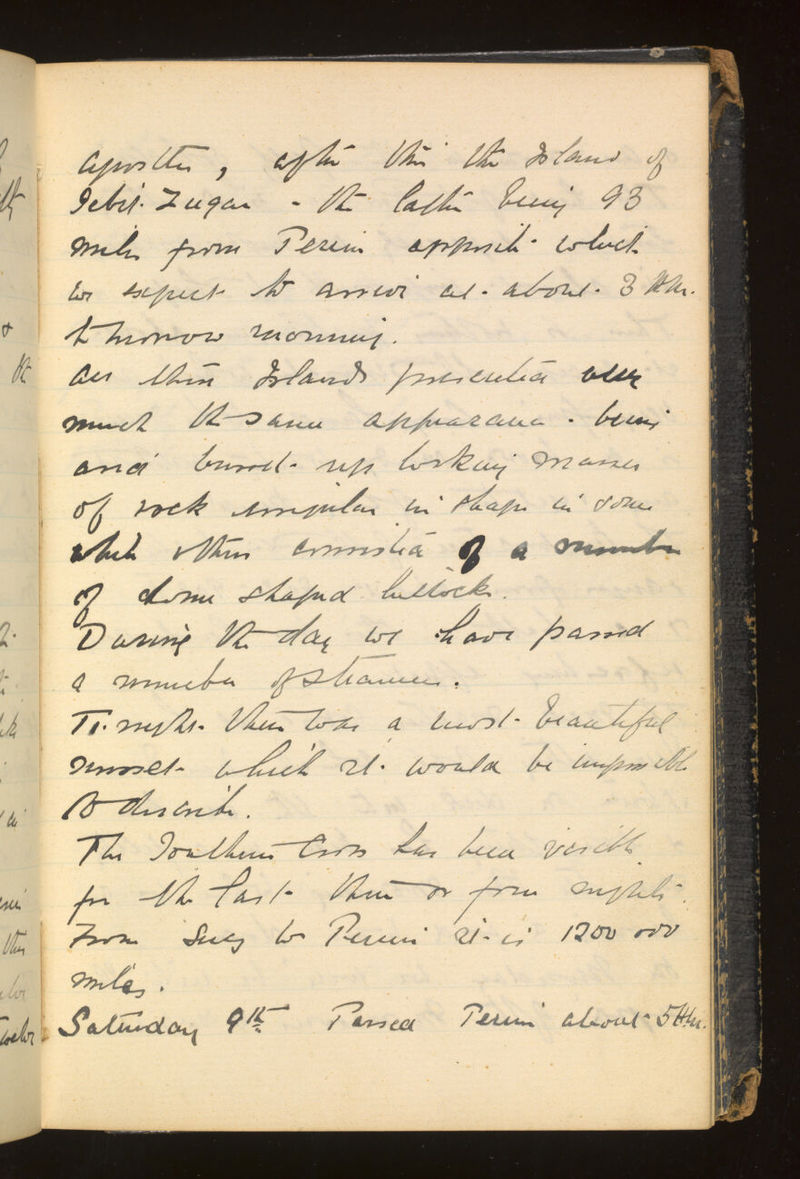 apostles, after this the Island of
Jebil-Zugar - the latter being 93
miles from Perim opposite which
we expect to arrive at about 3 A.M.
tomorrow morning.
All these Islands presented very
much the same appearance - being
arid burnt-up looking masses
of rock irregular in shape in some
while others consisted of a number
of dome shaped hillocks.
During the day we have passed
a number of steamers.
To-night there was a most beautiful
sunset which it would be impossible
to describe.
The Southern Cross has been visible
for the last three or four nights.
From Suez to Perim it is 1200
miles.
Saturday 9th Passed Perim about 5 A.M.